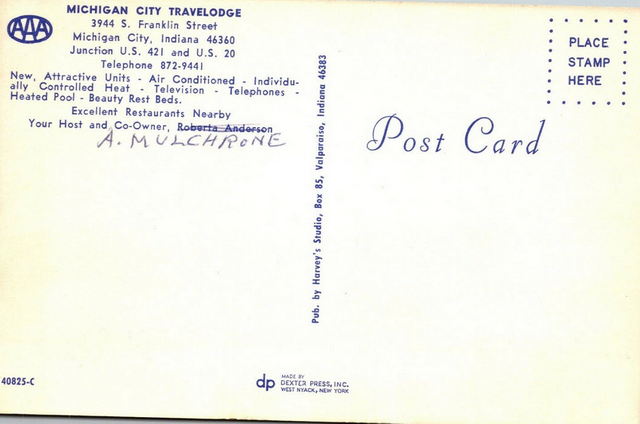 AAA
MICHIGAN CITY TRAVELODGE
3944 S. Franklin Street
Michigan City, Indiana 46360
Junction U.S. 421 and U.S. 20
Telephone 872-9441
New, Attractive Units - Air Conditioned - Individu-
ally Controlled Heat - Television - Telephones -
Heated Pool - Beauty Rest Beds.
Excellent Restaurants Nearby
Your Host and Co-Owner, Roberta Anderson
A. MULCHRONE
Pub. by Harvey's Studio, Box 85, Valparaiso, Indiana 46383
PLACE
STAMP
HERE
Post Card
40825-C
dp
MADE BY
DEXTER PRESS, INC.
WEST NYACK, NEW YORK